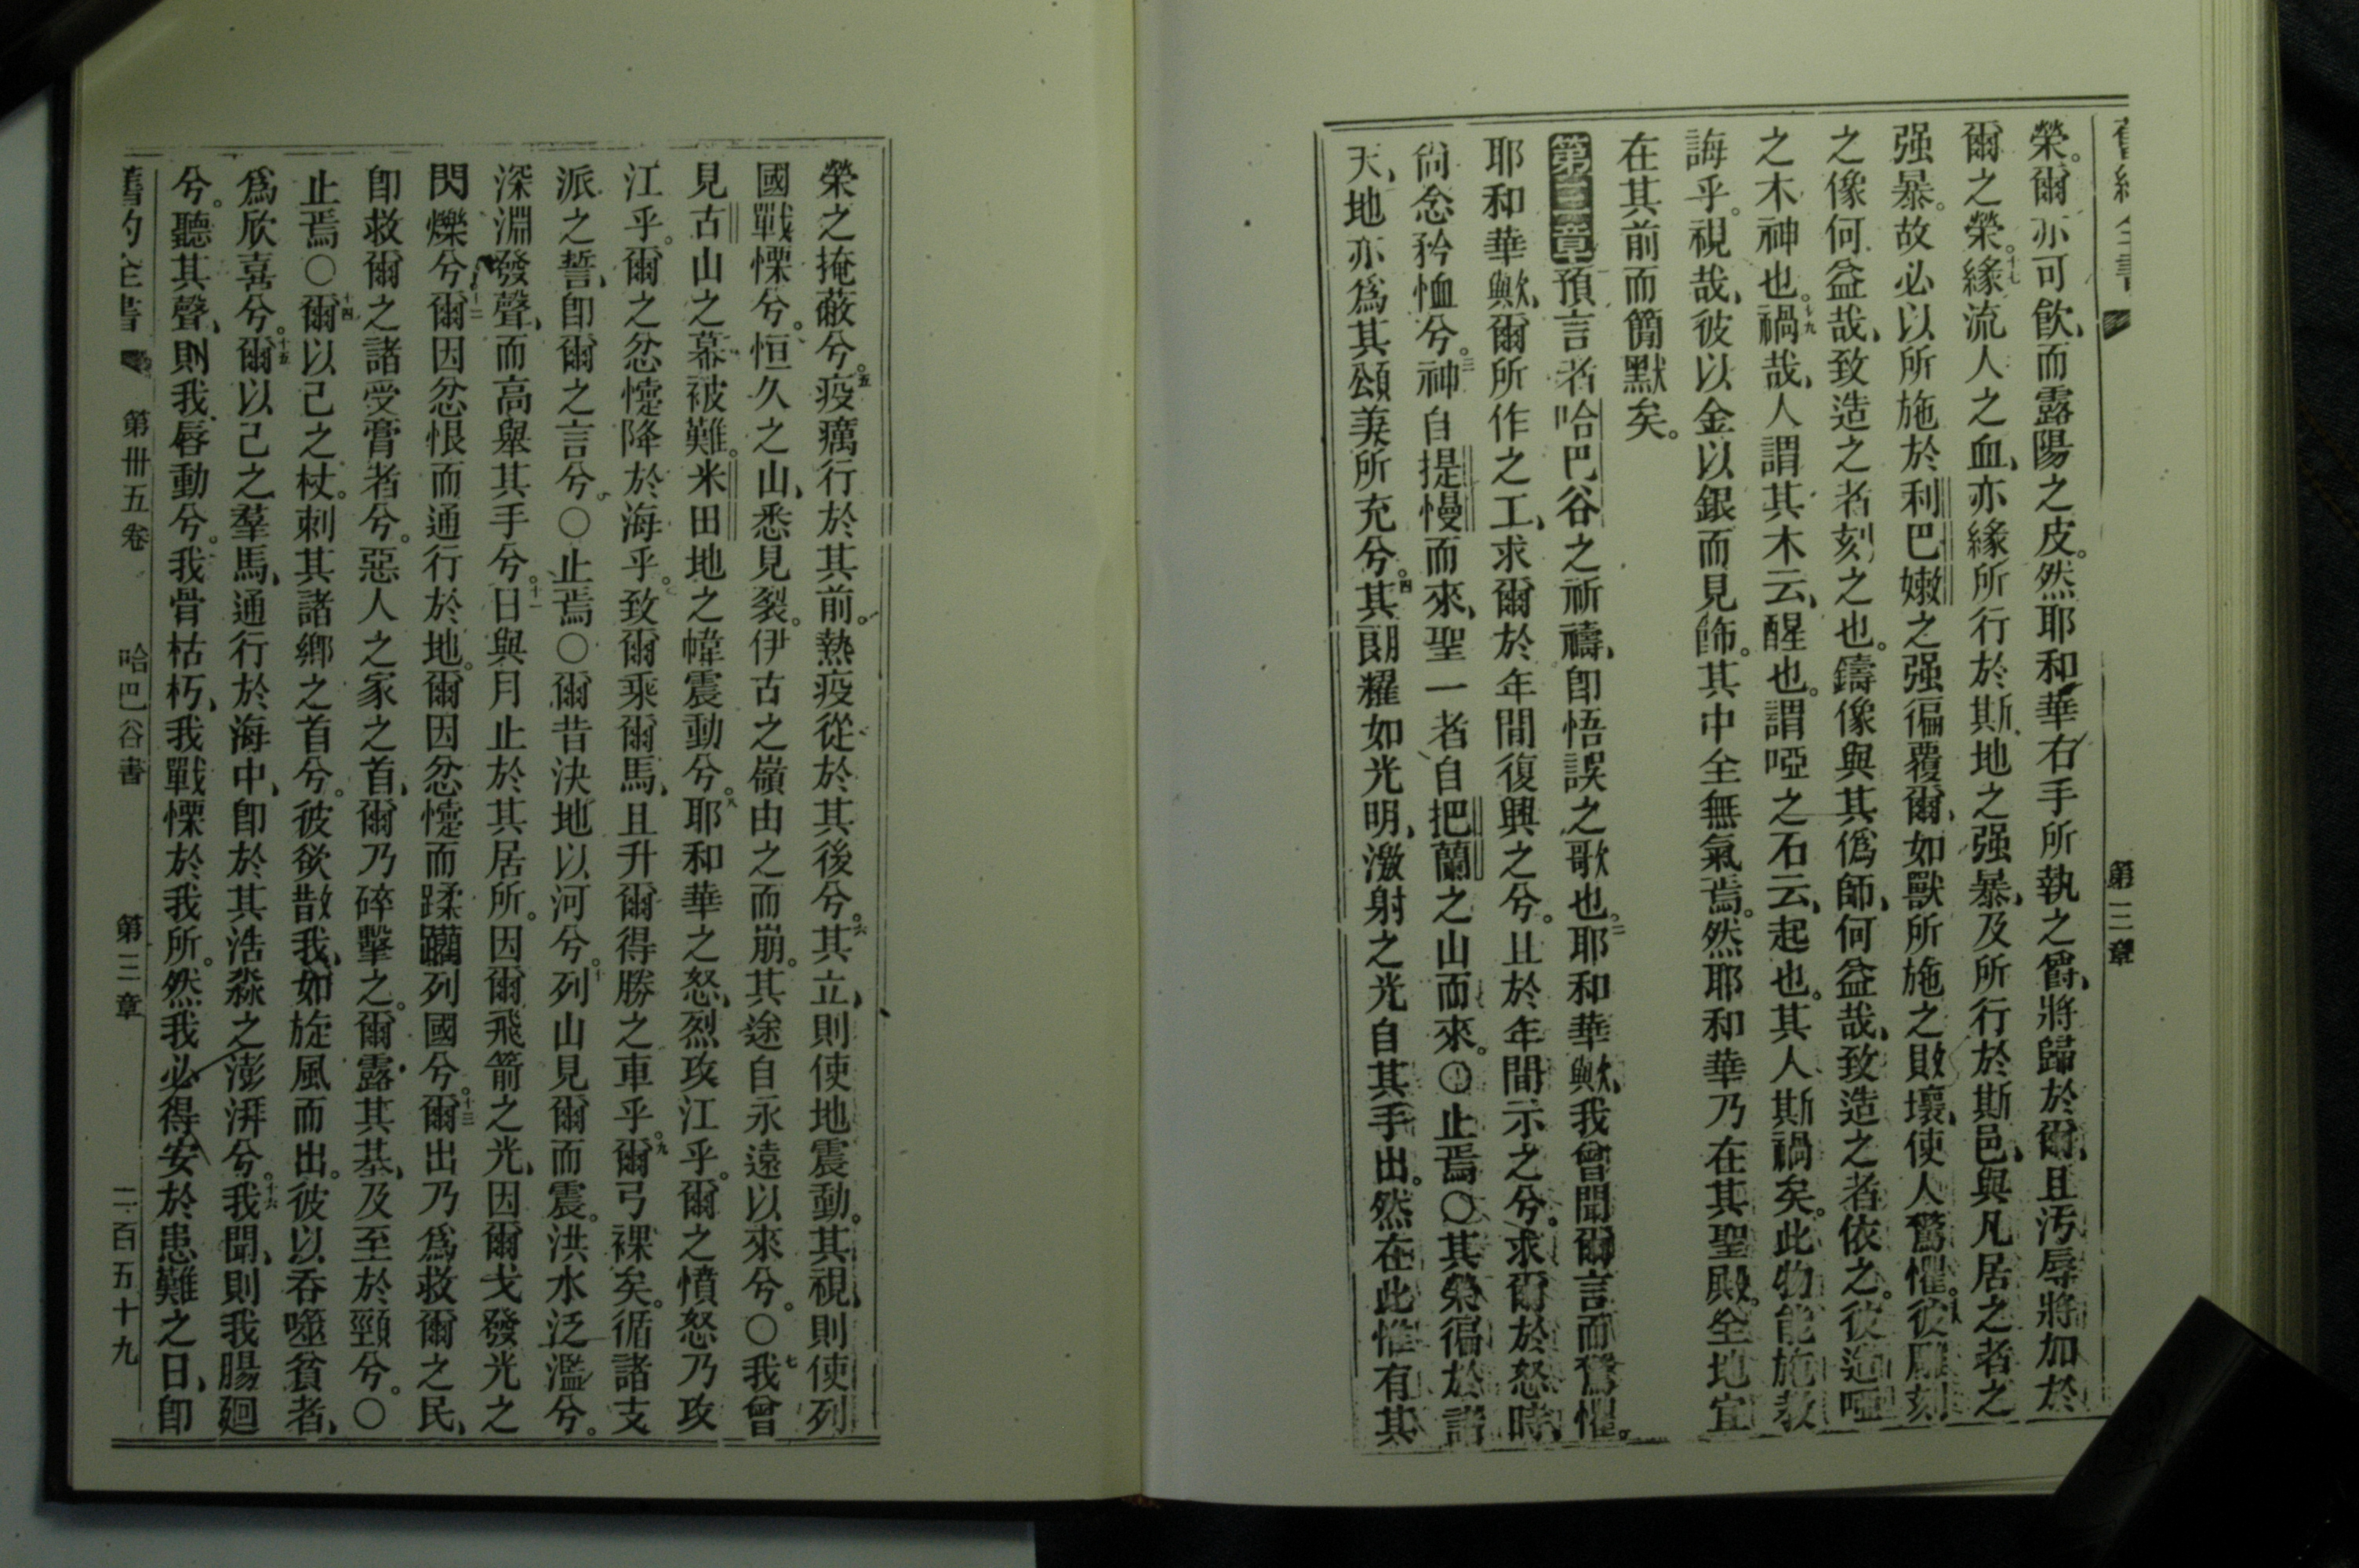 第三章
榮。爾亦可飲、而露陽之皮。然耶和華右手所執之爵、將歸於爾、且汚辱將加於
爾之榮。十七緣流人之血、亦緣所行於斯地之强暴、及所行於斯邑、與凡居之者之
强暴。故必以所施於利巴嫩之强徧覆爾、如獸所施之敗壞、使人驚懼。彼雕刻
之像何益哉、致造之者刻之也。鑄像與其僞師、何益哉、致造之者依之。彼造啞
之木神也。十九禍哉、人謂其木云、醒也。謂啞之石云、起也。其人斯禍矣。此物能施教
誨乎。視哉、彼以金以銀而見飾。其中全無氣焉。然耶和華乃在其聖殿。全地宜
在其前而簡默矣。
第三章預言者哈巴谷之祈禱、卽悟誤之歌也。二耶和華歟、我曾聞爾言而驚懼。
耶和華歟、爾所作之工、求爾於年間復興之兮。且於年間示之兮。求爾於怒時、
尙念矜恤兮。三神自提慢而來、聖一者自把蘭之山而來。〇止焉〇其榮徧於諸
天、地亦爲其頌美所充兮。四其朗耀如光明、激射之光自其手出。然在此惟有其
榮之掩蔽兮。五疫癘行於其前。熱疫從於其後兮。六其立、則使地震動。其視、則使列
國戰慄兮。恒久之山、悉見裂。伊古之嶺由之而崩。其途自永遠以來兮。〇七我曾
見古山之幕被難。米田地之幃震動兮。八耶和華之怒、烈攻江乎。爾之憤怒乃攻
江乎。爾之忿懥降於海乎。致爾乘爾馬、且升爾得勝之車乎。九爾弓裸矣。循諸支
派之誓、卽爾之言兮。〇止焉〇爾昔決地以河兮。十列山見爾而震。洪水泛濫兮。
深淵發聲、而高舉其手兮。十一日與月止於其居所。因爾飛箭之光、因爾戈發光之
閃爍兮。十二爾因忿恨而通行於地。爾因忿懥而蹂躪列國兮。十三爾出乃爲救爾之民、
卽救爾之諸受膏者兮。惡人之家之首、爾乃碎擊之。爾露其基、及至於頸兮。〇
止焉〇十四爾以己之杖。刺其諸鄉之首兮。彼欲散我、如旋風而出。彼以吞噬貧者、
爲欣喜兮。十五爾以己之羣馬、通行於海中、卽於其浩淼之澎湃兮。十六我聞、則我腸廻
兮。聽其聲、則我脣動兮。我骨枯朽、我戰慄於我所。然我必得安於患難之日、卽
舊約全書 第卅五卷 哈巴谷書 第三章 二百五十九